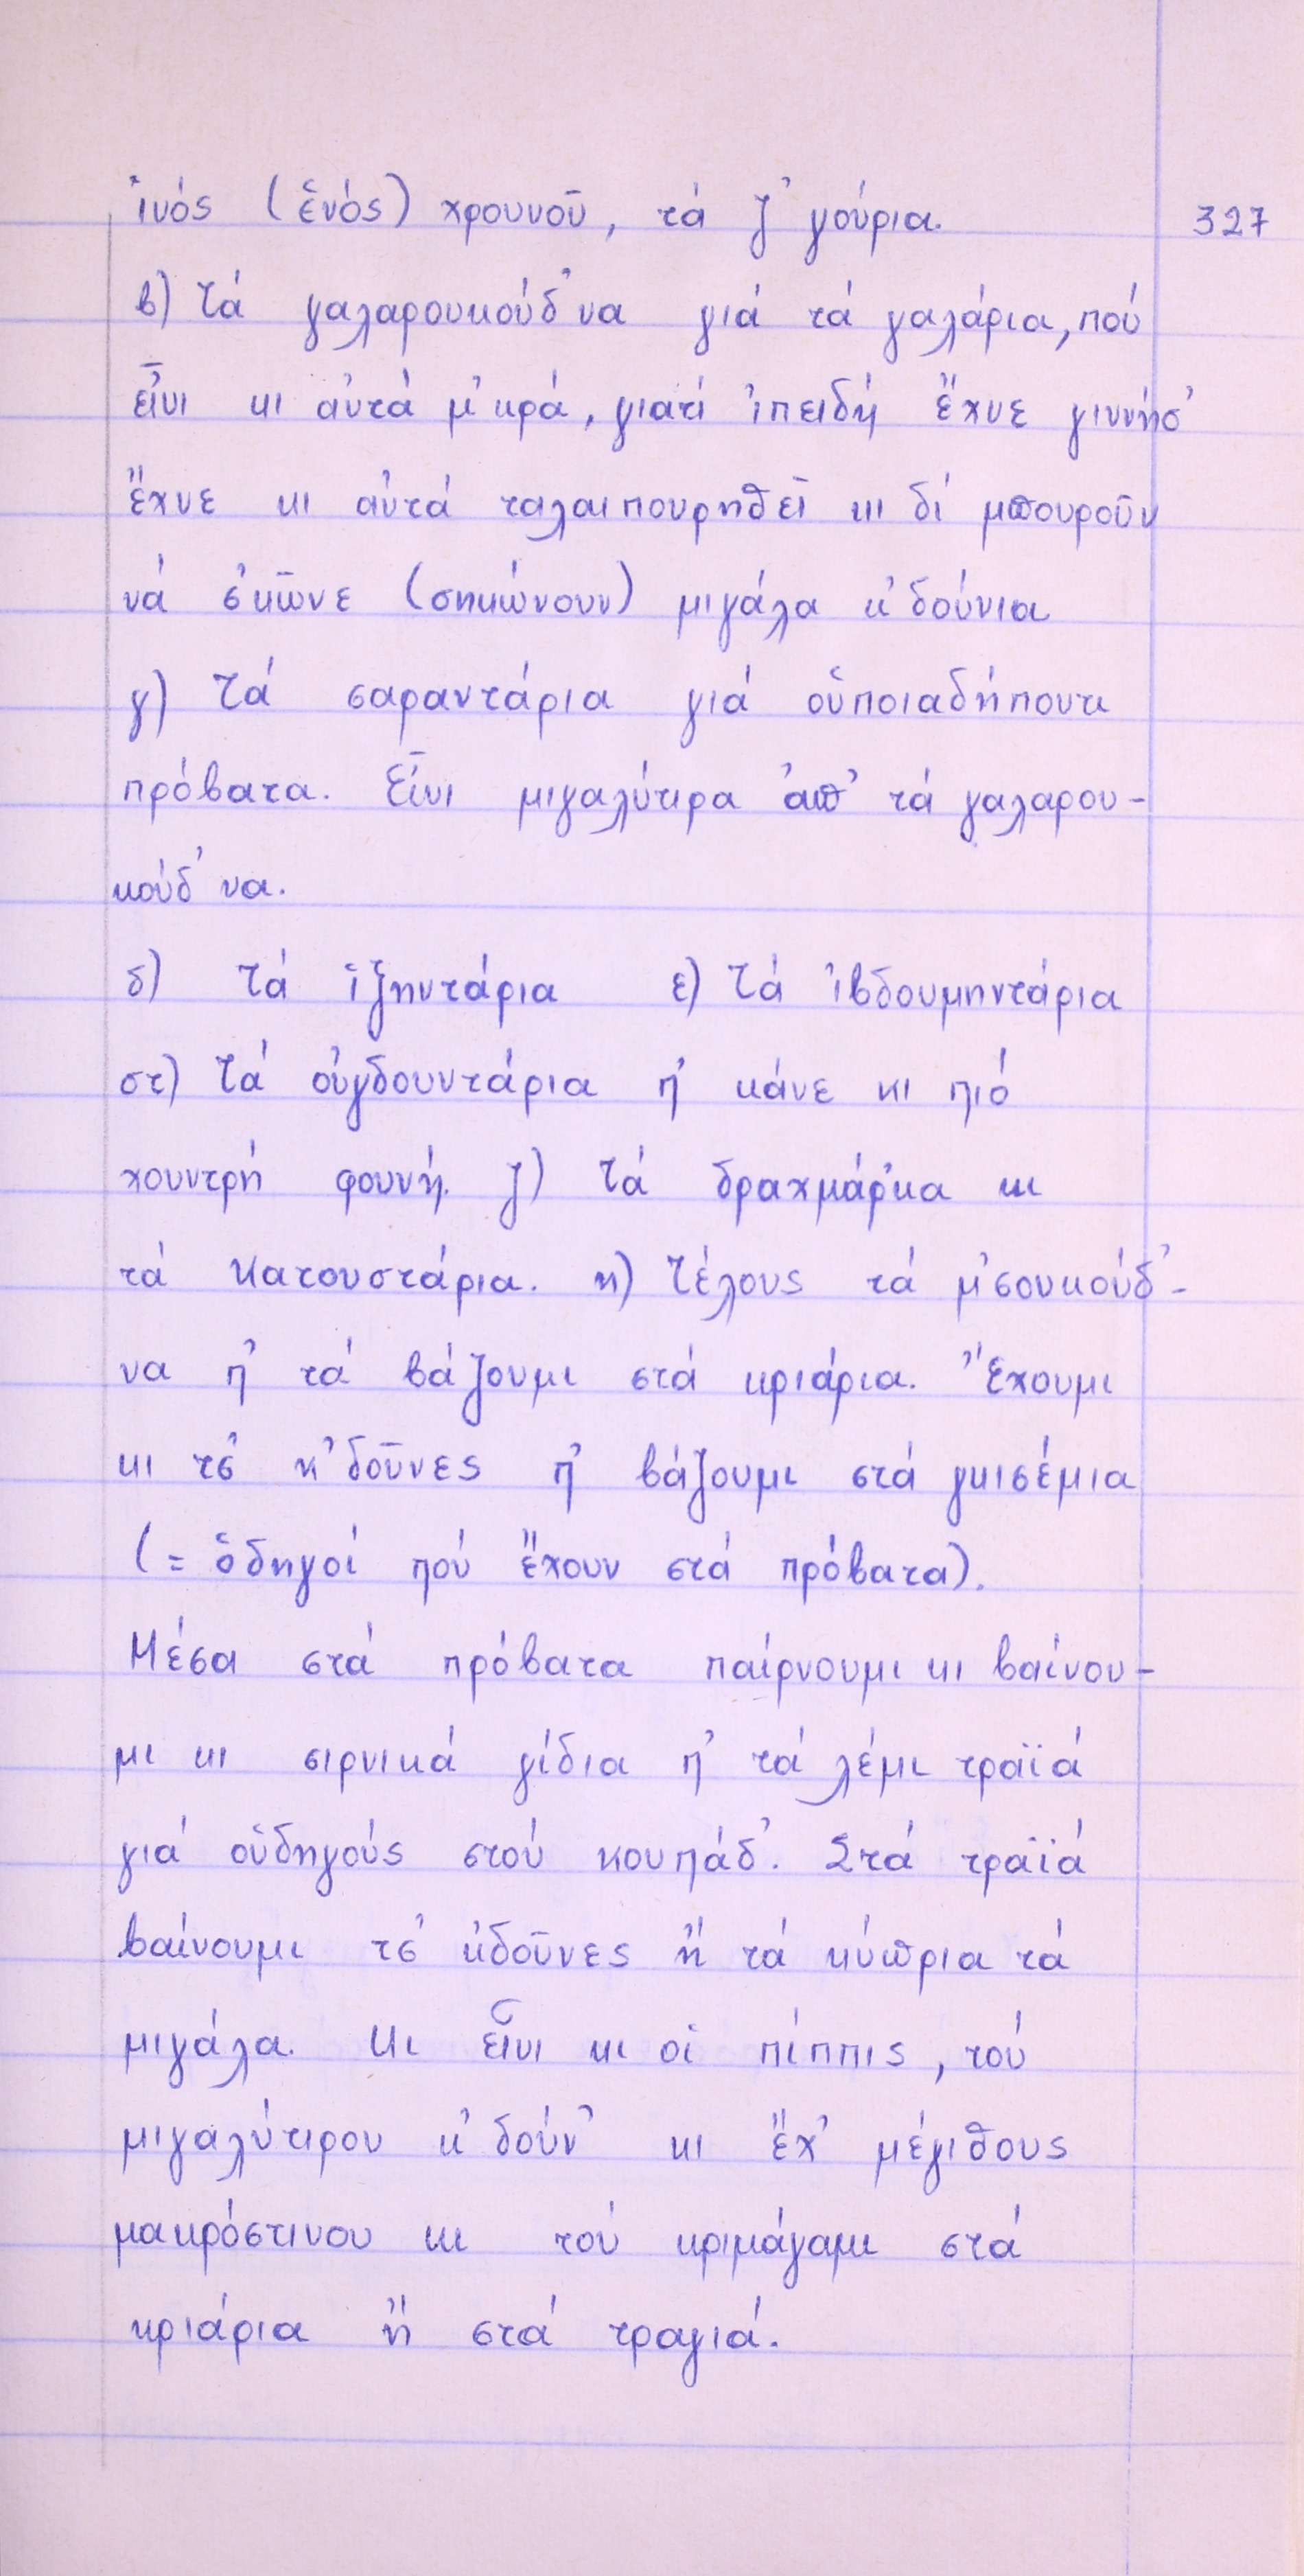 ἰνός (ἑνός) χρουνοῦ, τά ζ' γούρια. 327
β) Τά γαλαρουκούδ'να γιά τά γαλάρια, πού
εἶνι κι αὐτά μ'κρά, γιατί ἰπειδή ἔχνε γιννήσ'
ἔχνε κι αὐτά ταλαιπουρηθεῖ κι δέ μπουροῦν
νά σ'κῶνε (σηκώνουν) μιγάλα κ'δούνια
γ) Τά σαραντάρια γιά οὑποιαδήπουτι
πρόβατα. Εἶνι μιγαλύτιρα ἀπ' τά γαλαρου-
κούδ'να.
δ) Τά ἱξηντάρια ε) Τά ἰβδουμηντάρια
στ) Τά οὐγδουντάρια π' κάνε κι πιό
χουντρή φουνή. ζ) Τά δραχμάρ'κα κι
τά κατουστάρια. η) Τέλους τά μ'σουκούδ'-
να π' τά βάζουμι στά κριάρια. Ἔχουμι
κι τσ' κ'δοῦνες π' βάζουμι στά γκισέμια
(= ὁδηγοί πού ἔχουν στά πρόβατα).
Μέσα στά πρόβατα παίρνουμι κι βαίνου-
μι κι σιρνικά γίδια π' τά λέμι τραϊά
γιά οὑδηγούς στού κουπάδ'. Στά τραϊά
βαίνουμι τσ' κ'δοῦνες ἤ τά κύπρια τά
μιγάλα. Κι εἶνι κι οἱ πίππις, τού
μιγαλύτιρου κ'δούν' κι ἔχ' μέγιθους
μακρόστινου κι τού κριμάγαμι στά
κριάρια ἤ στά τραγιά.